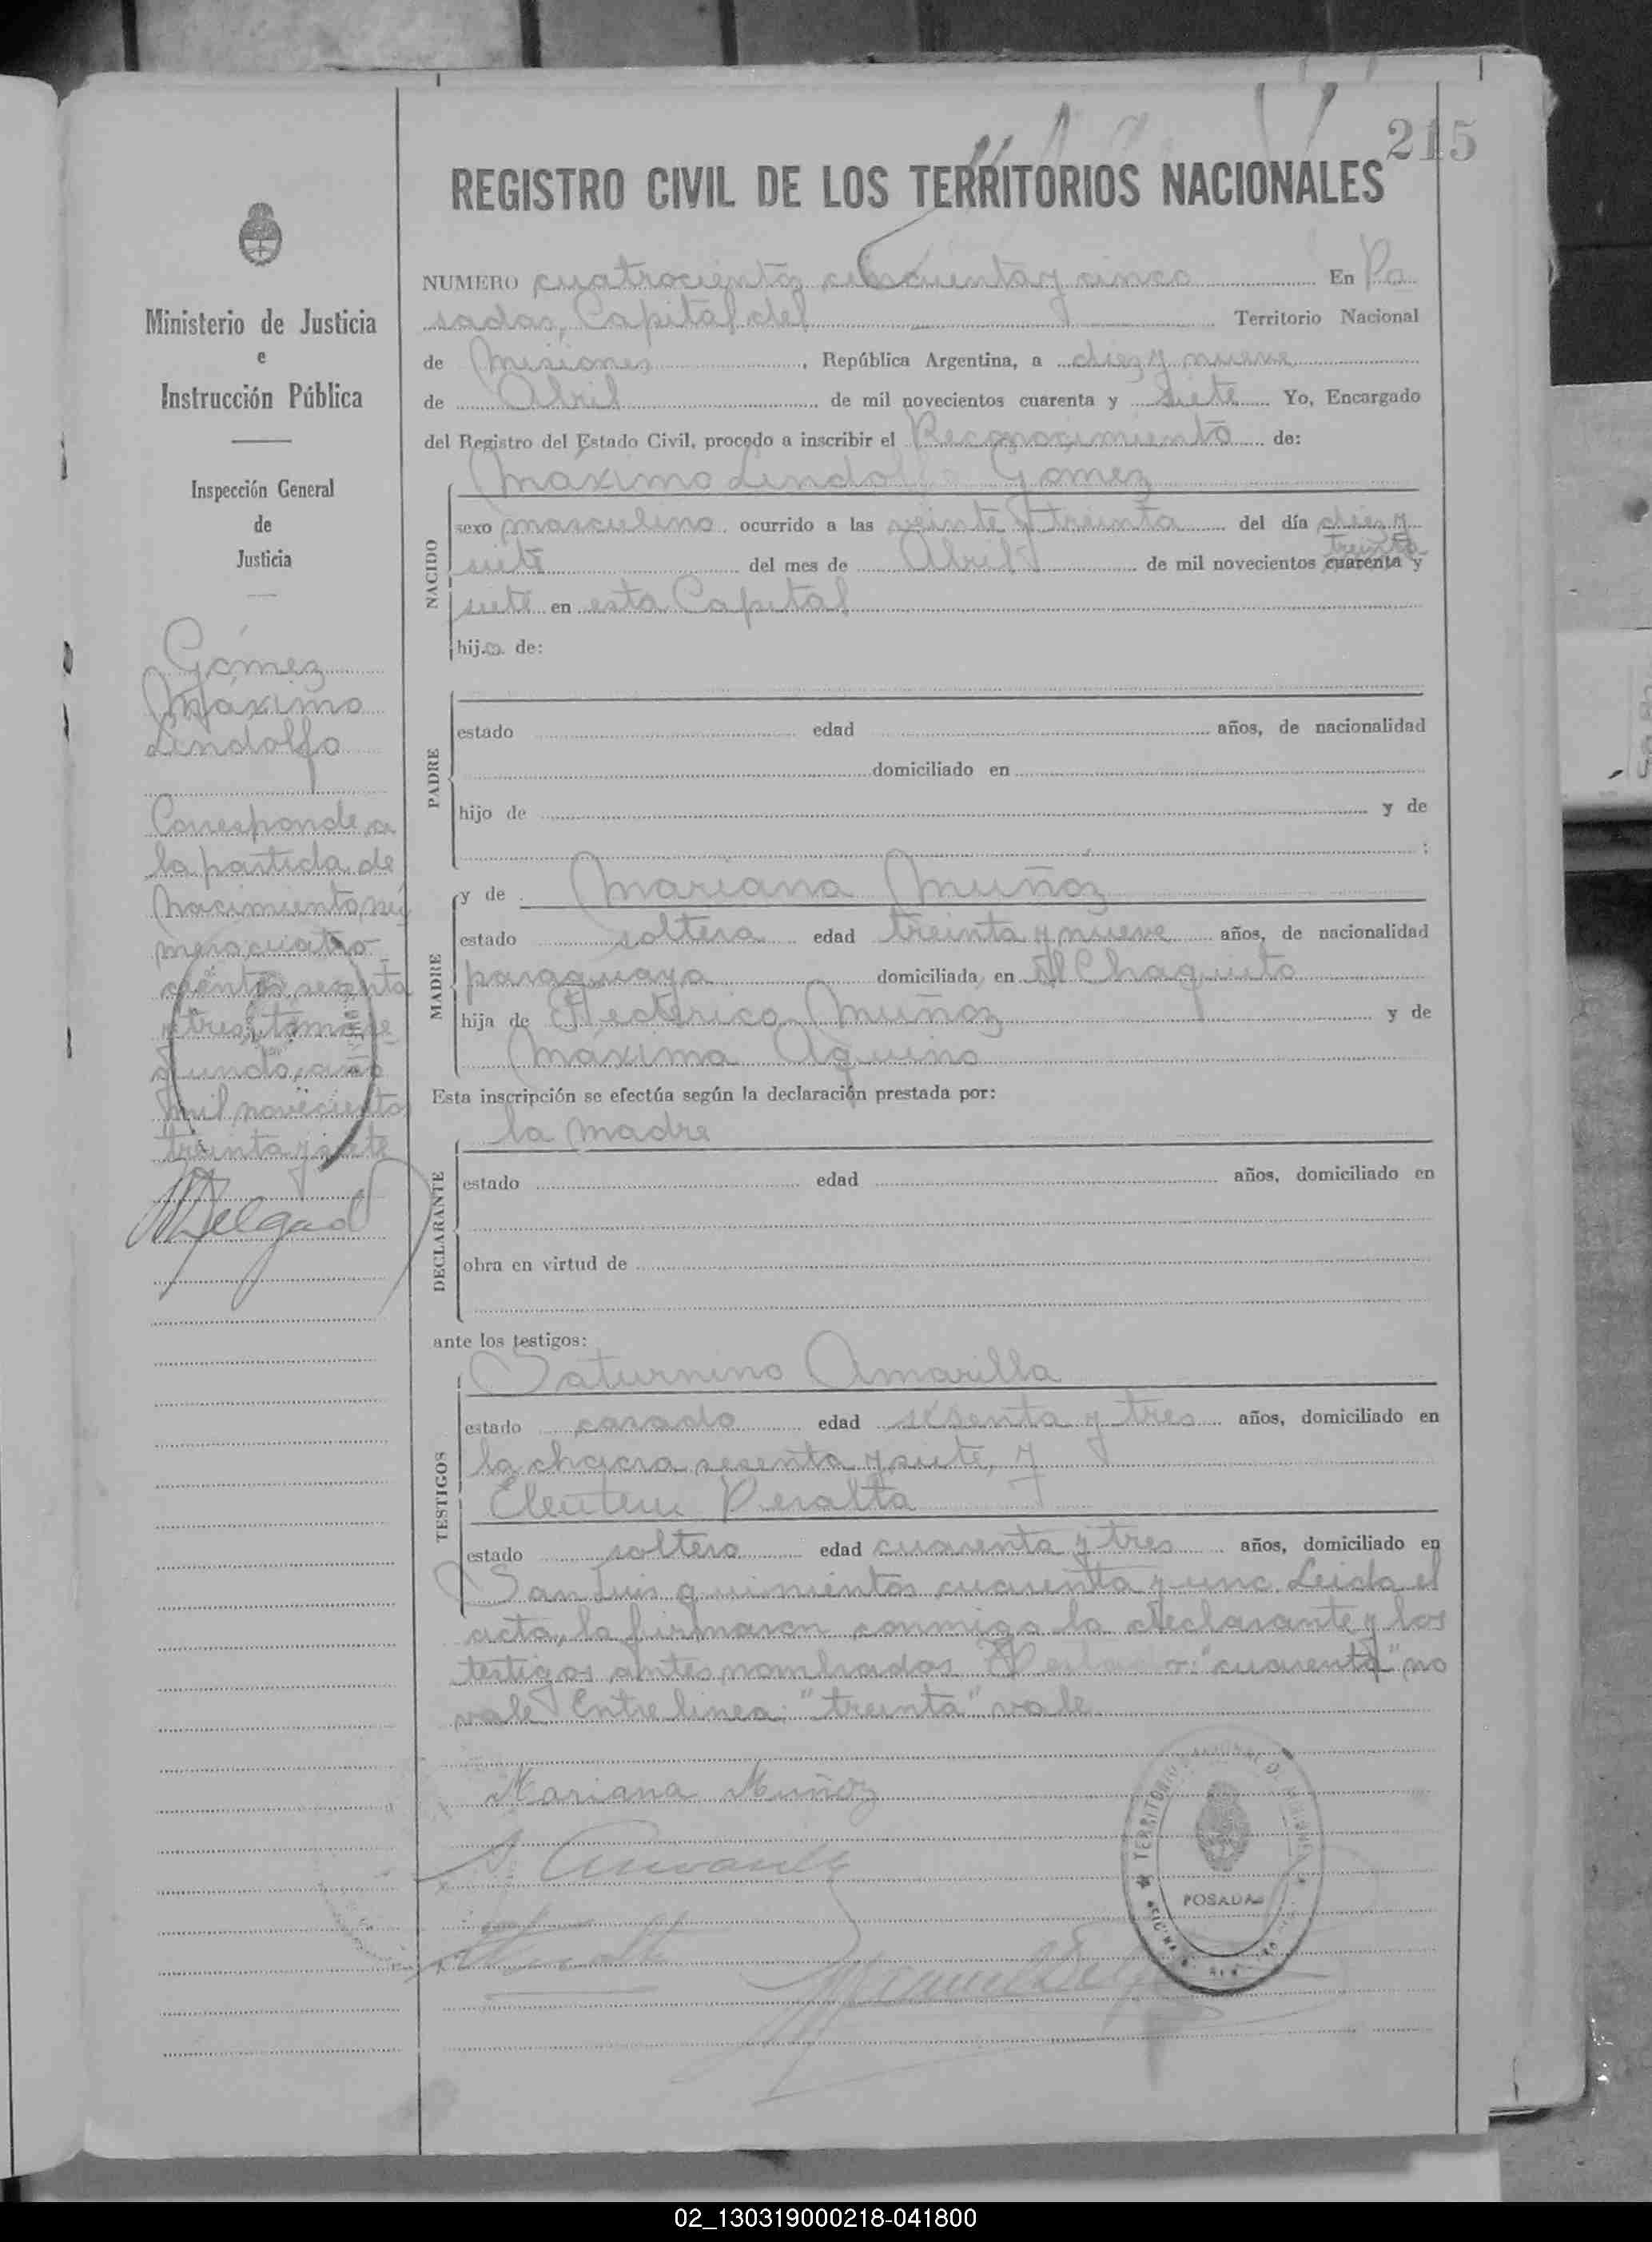 215
REGISTRO CIVIL DE LOS TERRITORIOS NACIONALES
NUMERO cuatrocientos cincuenta y cinco En Po
sadas, Capital del Territorio Nacional
de Misiones, República Argentina, a diez y nueve
de Abril de mil novecientos cuarenta y siete Yo, Encargado
del Registro del Estado Civil, procedo a inscribir el Reconocimiento de:
Máximo Lindolfo Gómez
NACIDO
sexo masculino ocurrido a las veinte y treinta del día diez y
treinta
siete del mes de Abril de mil novecientos cuarenta y
siete en esta Capital
hijo de:
PADRE
estado edad años, de nacionalidad
domiciliado en
hijo de y de
:
MADRE
y de Mariana Muñoz
estado soltera edad treinta y nueve años, de nacionalidad
paraguaya domiciliada en El Chaquito
hija de Federico Muñoz y de
Máxima Aquino
Esta inscripción se efectúa según la declaración prestada por:
la madre
DECLARANTE
estado edad años, domiciliado en
obra en virtud de
ante los testigos:
TESTIGOS
Saturnino Amarilla
estado casado edad sesenta y tres años, domiciliado en
la chacra sesenta y siete, y
Eleuterio Peralta
estado soltero edad cuarenta y tres años, domiciliado en
San Luis quinientos cuarenta y uno. Leida el
acta, la firmaron conmigo la declarante y los
testigos antes nombrados. Testado: "cuarenta" no
vale Entre linea: "treinta" vale.
Mariana Muñoz
TERRITORIO NACIONAL DE MISIONES
POSADAS
Ministerio de Justicia
e
Instrucción Pública
Inspección General
de
Justicia
Gómez
Máximo
Lindolfo
Corresponde a
la partida de
nacimiento nú
mero cuatro
cientos sesenta
y tres, tomo se
gundo, año
mil novecientos
treinta y siete
MDelgado
02_130319000218-041800